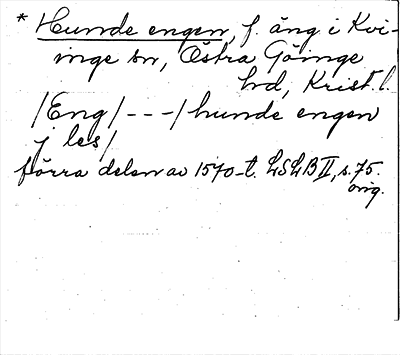 * Hunde engen, f. äng i Kvi-
inge sn, Östra Göinge
hd, Krist. l.
/Eng/ - - - / hunde engen
j les /
förra delen av 1570-t. LSLB II, s. 75.
orig.